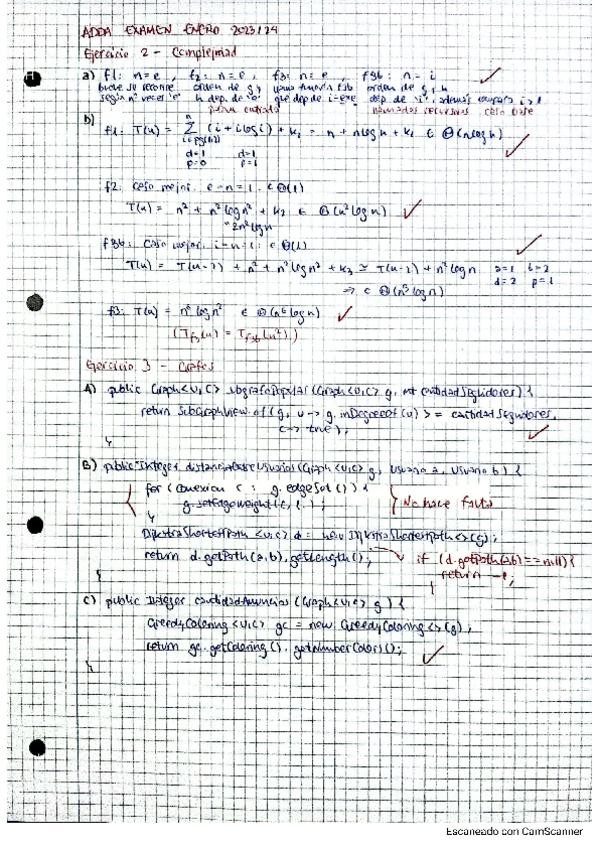 ADDA EXAMEN ENERO 2023/24
Ejercicio 2 - Complejidad
a) f1: n=e, f2: n=e, f3: n=e, f3b: n-i
bucle se recorre orden de g y
según nº veces "e" h dep de "e" que dep de i-e dep de "i", además
llamadas recursivas caso base
b)
f1: T(n) = Σ (i + i log i) + k₁ = n + n log n + k₁ ∈ Θ(n log n)
d=1 d=1
p=0 p=1
f2: Caso mejor: e-n=1 ∈ Θ(1)
T(n) = n² + n² log n² + k₂ ∈ Θ(n² log n)
2n² log n
f3b: Caso mejor: i-n-1: ∈ Θ(1)
T(n) = T(n-2) + n² + n² log n² + k₃ ≃ T(n-2) + n² log n a=1 b=2
d=2 p=1
⇒ ∈ Θ(n³ log n)
f3: T(n) = n⁶ log n² ∈ Θ(n⁶ log n)
(Tf3(n) = Tf3b(n²))
Ejercicio 3 - Grafos
A) public Graph<U,C> subgrafoPopular(Graph<U,C> g, int cantidadSeguidores) {
return SubGraphView.of(g, v -> g.inDegreeOf(v) >= cantidadSeguidores,
c -> true);
}
B) public Integer distanciaEntreUsuarios(Graph<U,C> g, Usuario a, Usuario b) {
for (Conexion c : g.edgeSet()) {
g.setEdgeWeight(c, 1.);
} No hace falta
}
DijkstraShortestPath<U,C> d = new DijkstraShortestPath<>(g);
return d.getPath(a,b).getLength();
if (d.getPath(a,b)==null) {
return -1;
}
}
C) public Integer cantidadAnuncios(Graph<U,C> g) {
GreedyColoring<U,C> gc = new GreedyColoring<>(g);
return gc.getColoring().getNumberColors();
}
Escaneado con CamScanner